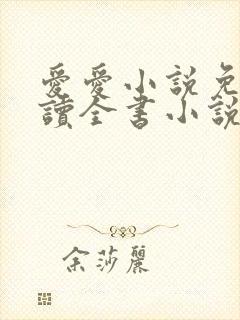 愛愛小説免
讀全書小說
余莎麗